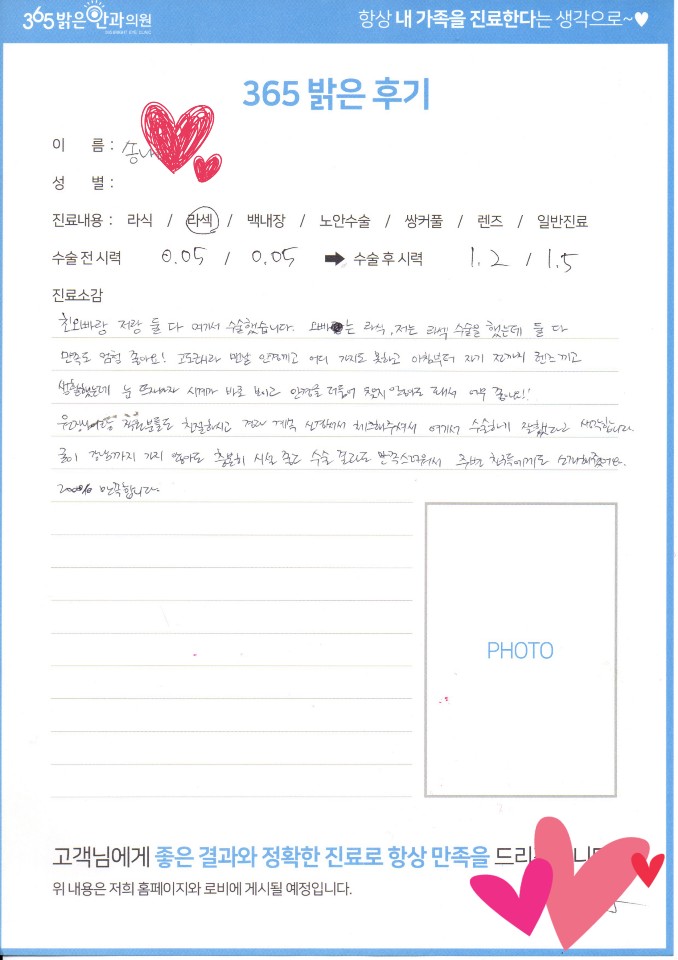 365 밝은안과의원
항상 내 가족을 진료한다는 생각으로~♥
365 밝은 후기
이 름 : 송
성 별 :
진료내용 : 라식 / 라섹 / 백내장 / 노안수술 / 쌍커풀 / 렌즈 / 일반진료
수술 전 시력 0.05 / 0.05 → 수술 후 시력 1.2 / 1.5
진료소감
친오빠랑 저랑 둘 다 여기서 수술했습니다. 오빠는 라식, 저는 라섹 수술을 했는데 둘 다
만족도 엄청 좋아요! 고도근시라 맨날 안경끼고 어디 가지도 못하고 아침부터 자기 전까지 렌즈끼고
생활했는데 눈 뜨자마자 시계가 바로 보이고 안경을 더듬어 찾지 않아도 돼서 너무 좋습니다!!
친절하시고 결과 계속 신경써서 체크해주셔서 여기서 수술하길 잘했다고 생각합니다.
굳이 강남까지 가지 않아도 충분히 시설 좋고 수술 결과도 만족스러워서 주변 친구들에게도 소개해줬어요.
200% 만족합니다.
PHOTO
고객님에게 좋은 결과와 정확한 진료로 항상 만족을
위 내용은 저희 홈페이지와 로비에 게시될 예정입니다.